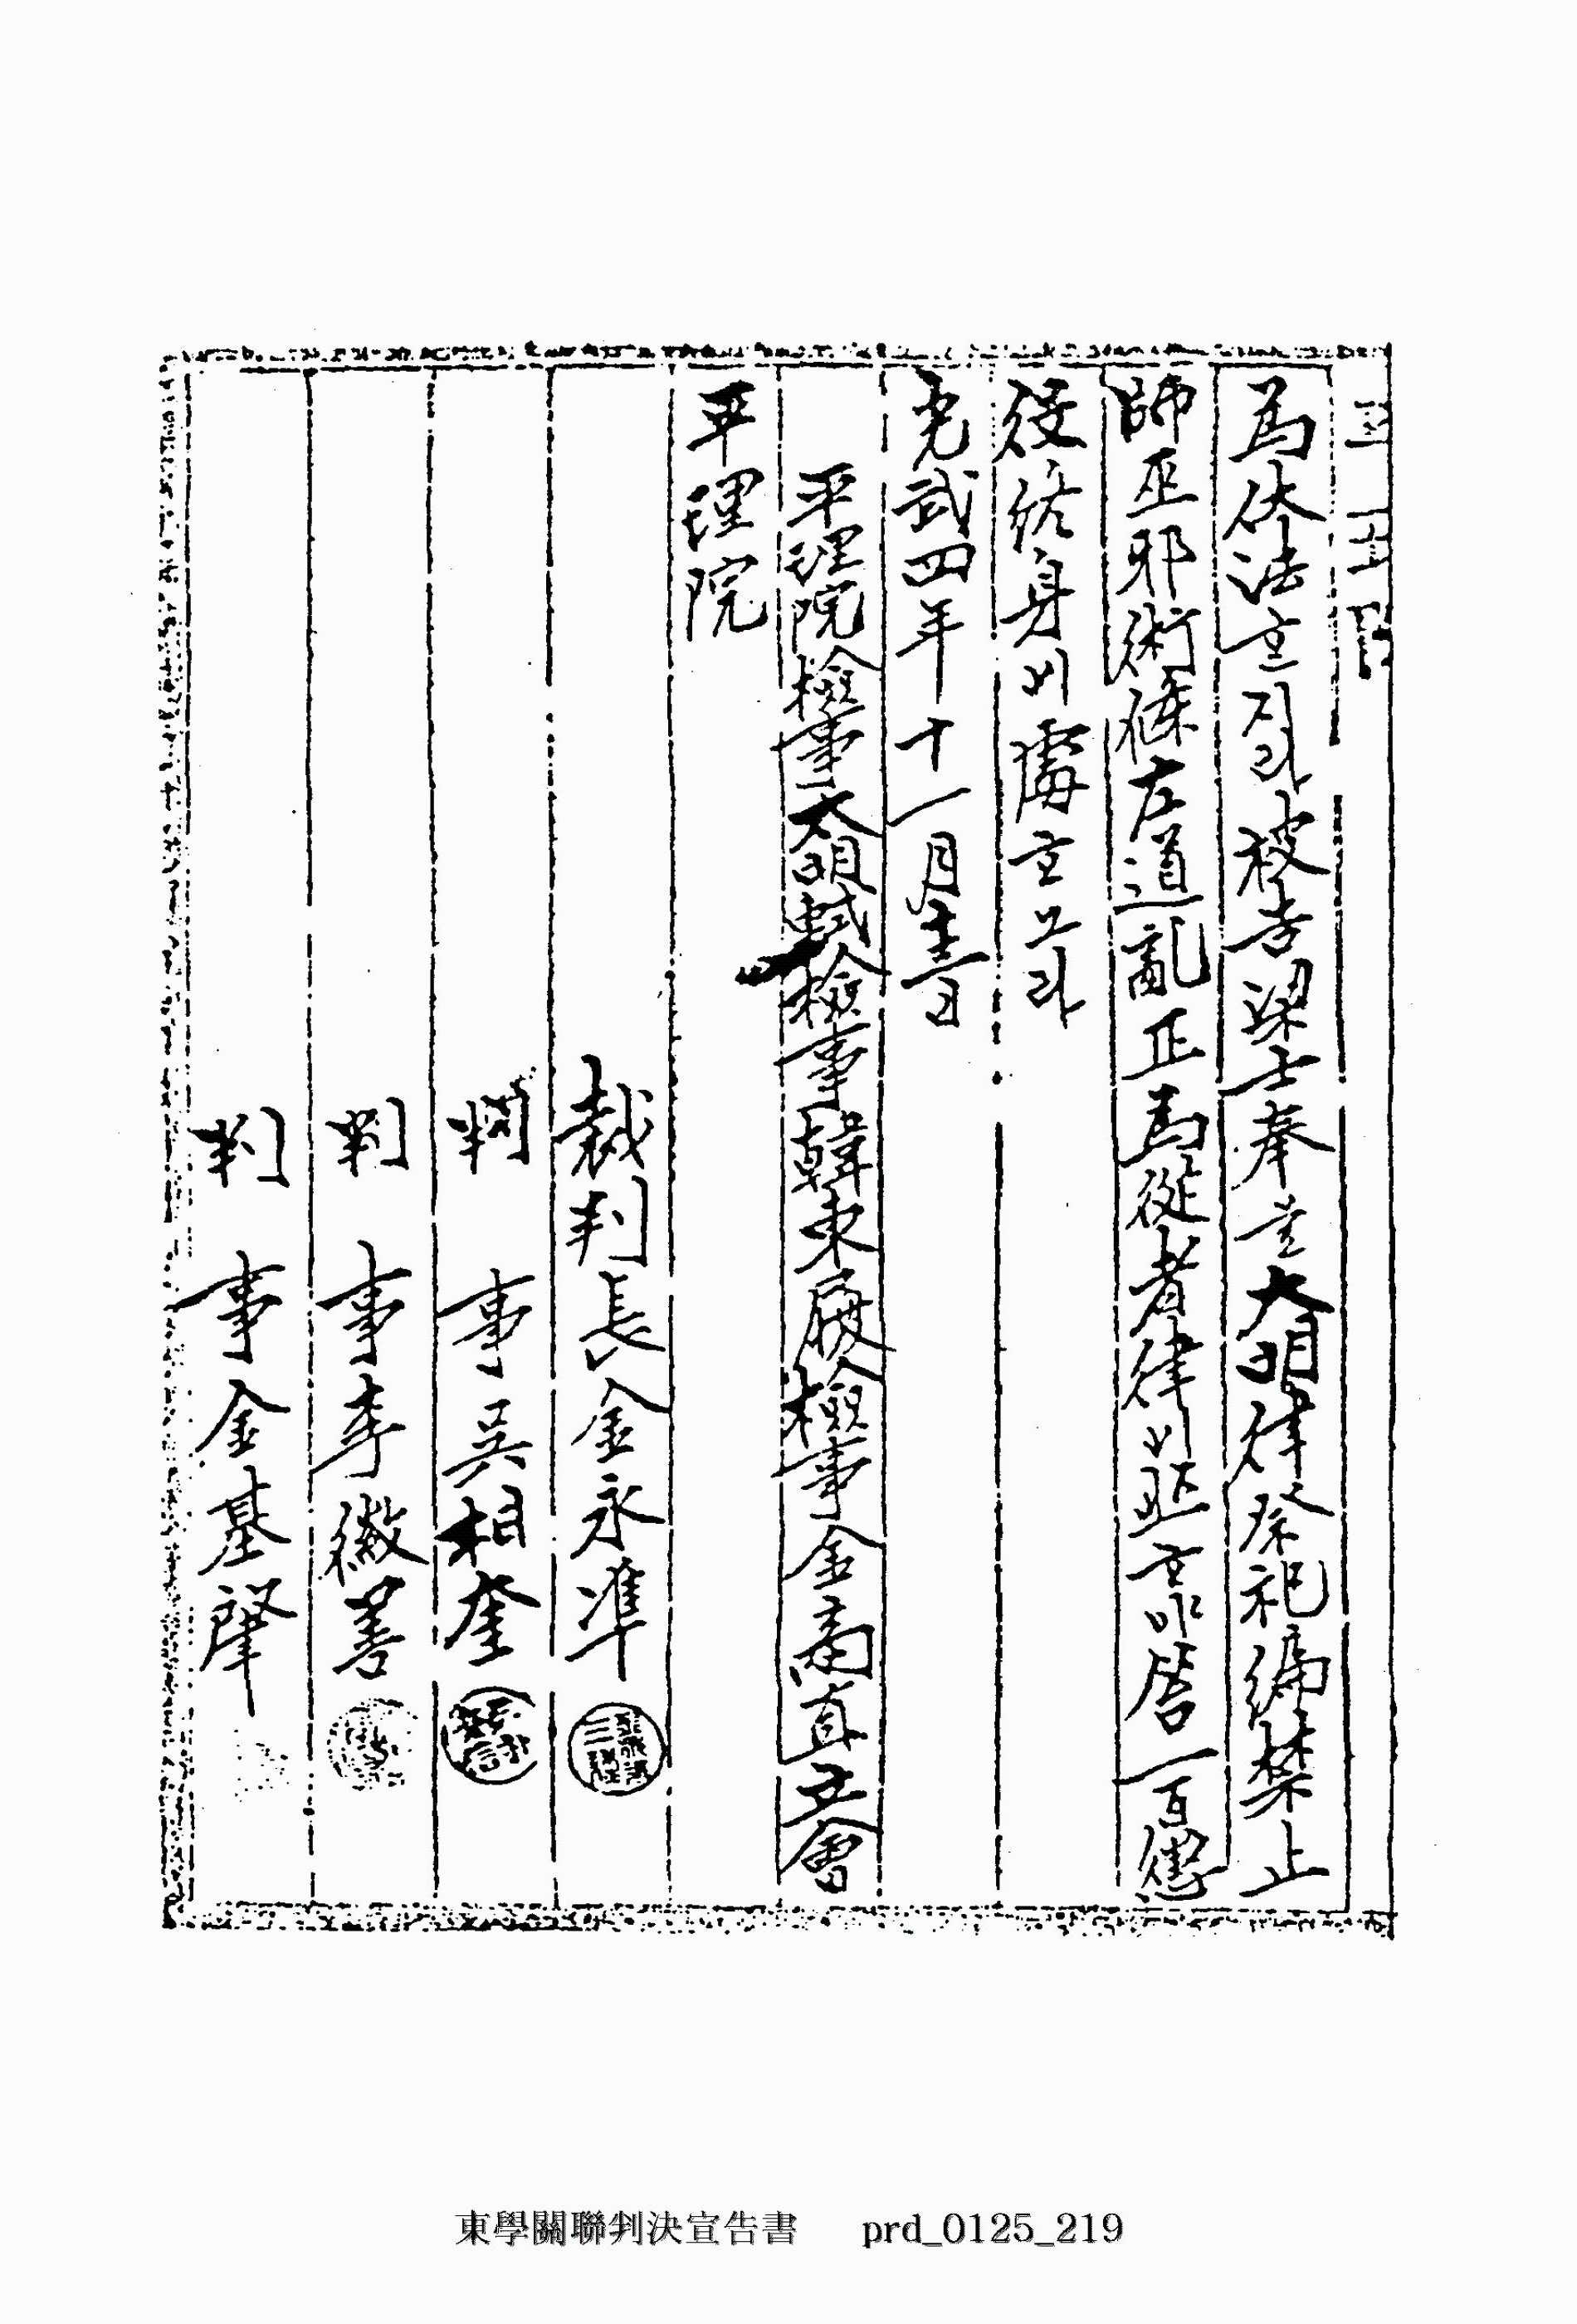 爲依法ホ지라被告梁士奉은大明律祭祀編禁止
師巫邪術條左道亂正爲從者律에照ホ야笞一百懲
役終身에處ホ노라
光武四年十一月 日
平理院檢事太明軾檢事韓東履檢事金商直立會
平理院
裁判長金永準
判事吳相奎
判事李徽善
判事金基肇
東學關聯判決宣告書 prd_0125_219